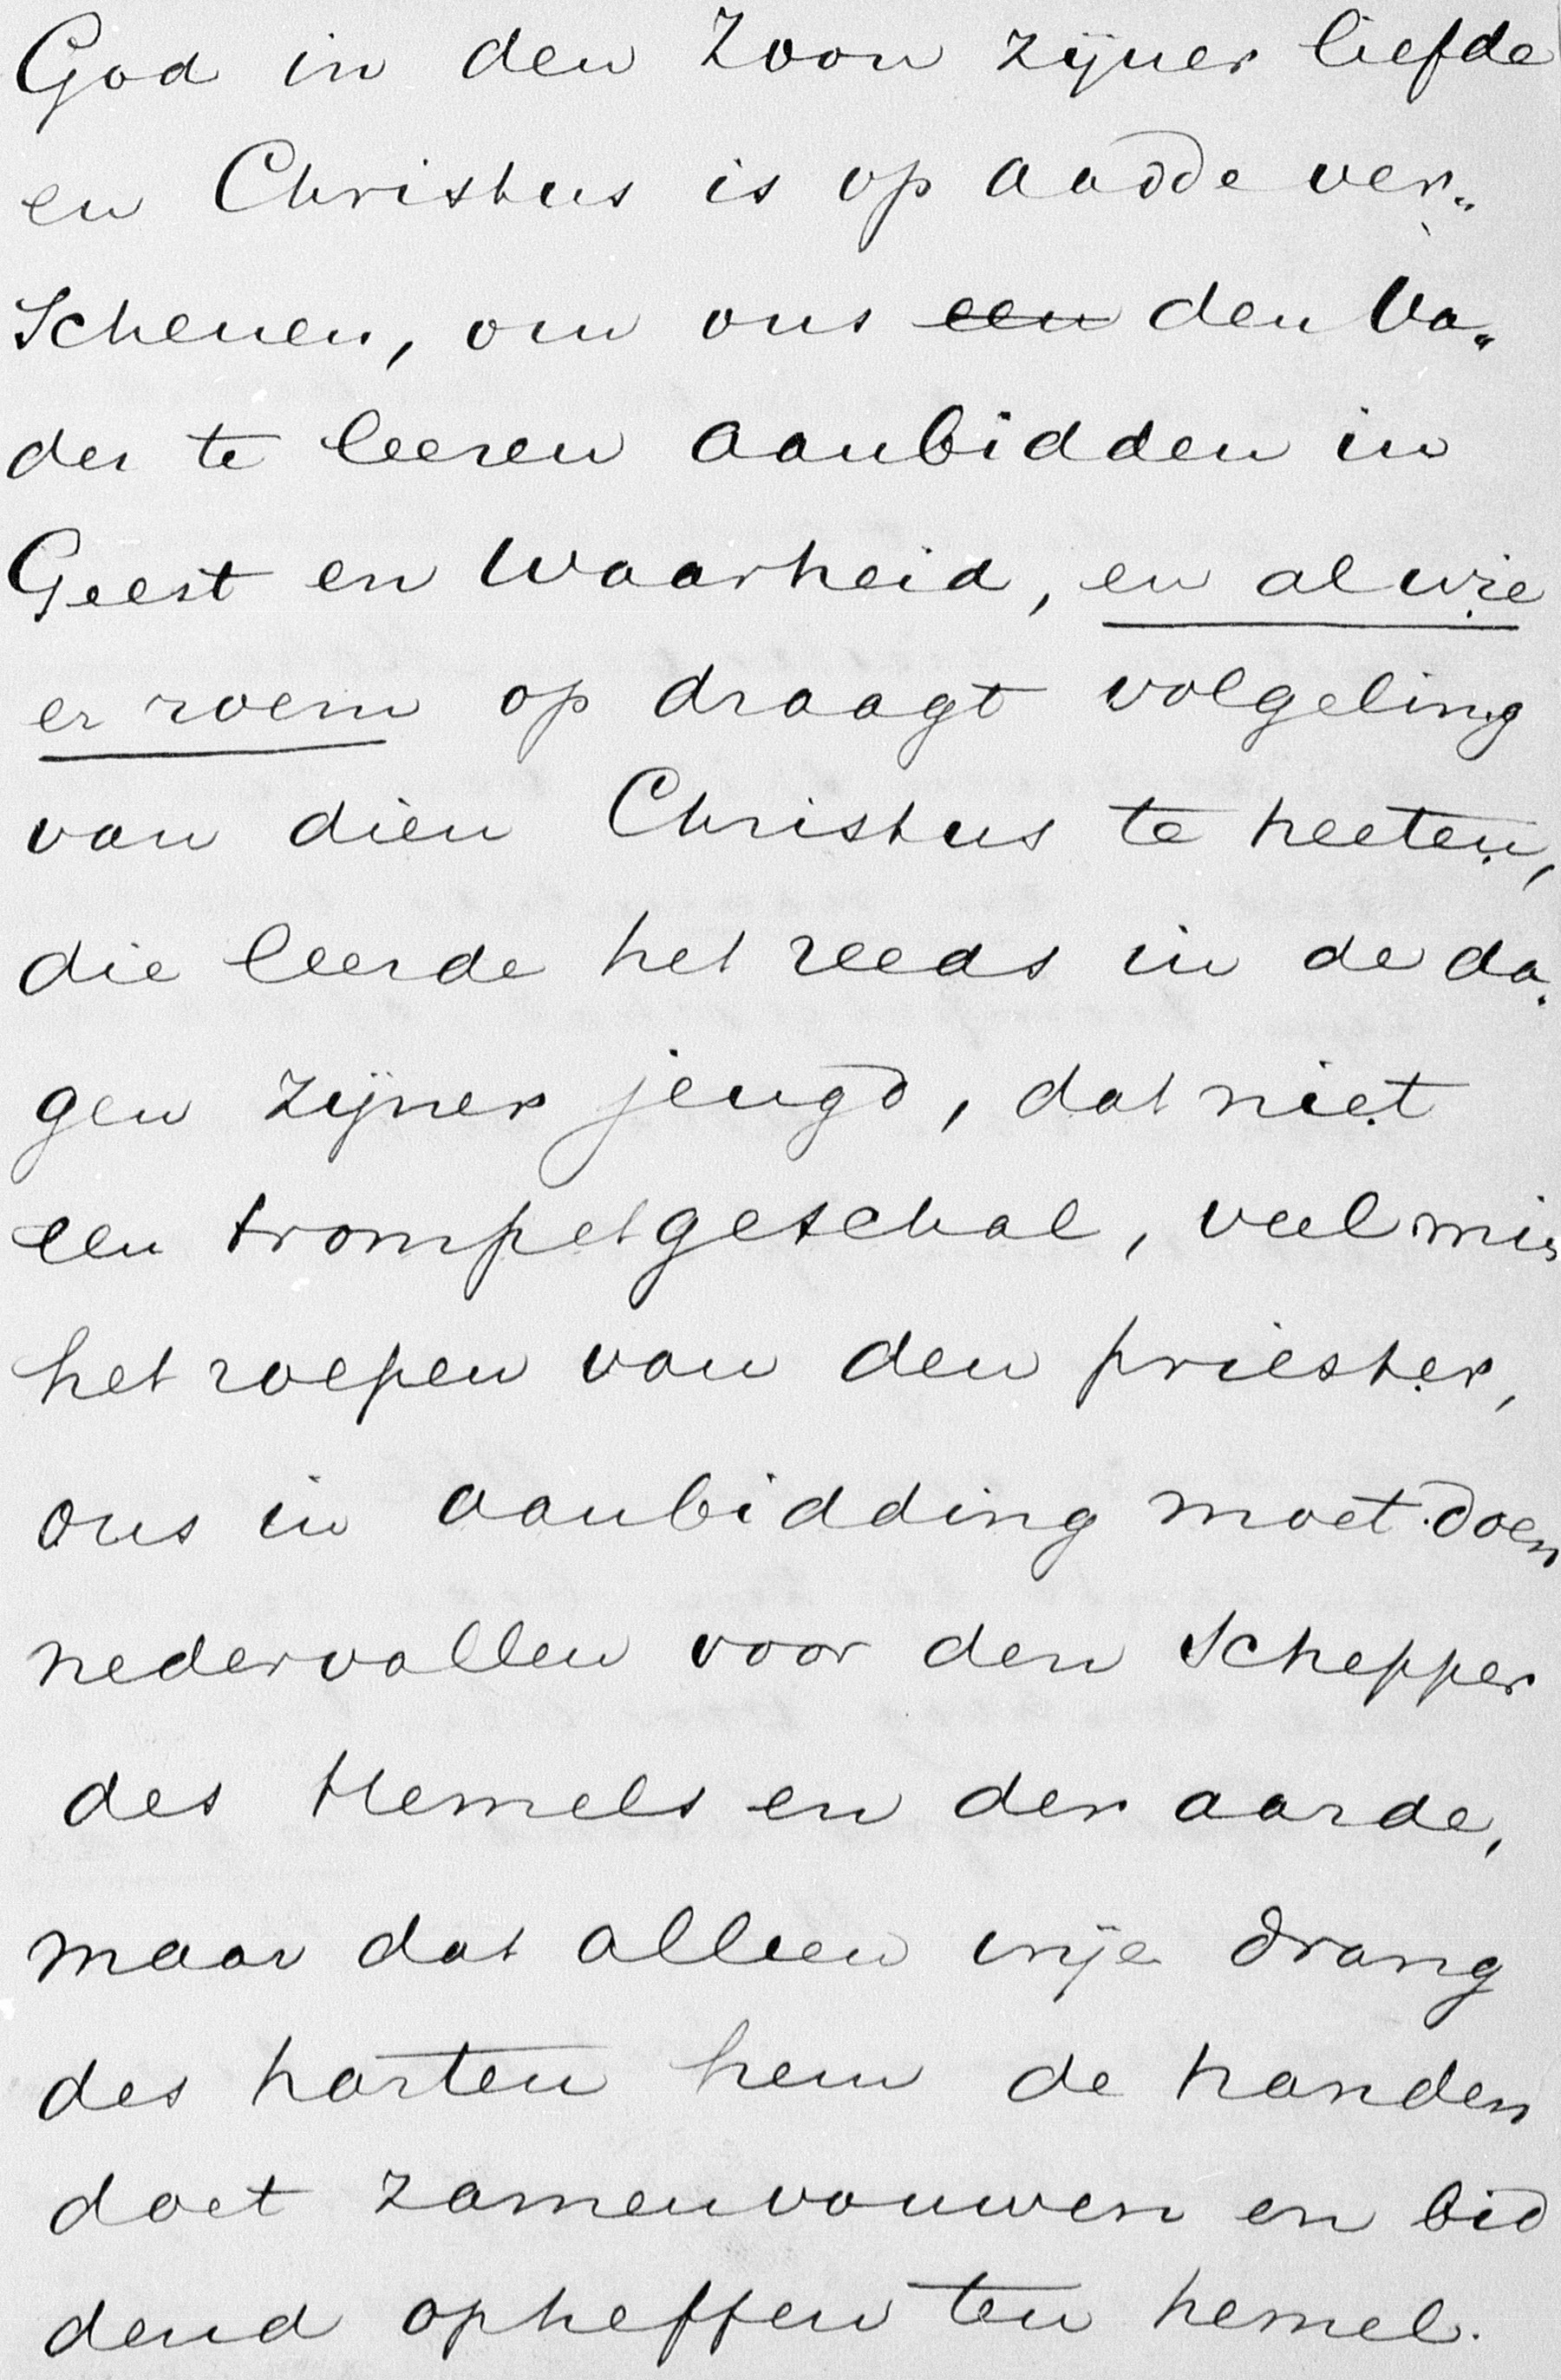 God in den Zoon zijner liefde
en Christus is op aadde ver„
schenen, om ons een den Va„
der te leeren aanbidden in
Geest en Waarheid, en al wie
er roem op draagt volgeling
van dien Christus te heeten,
die leerde het reeds in de da„
gen zijner jeugd, dat niet
een trompetgeschal, veel min
het roepen van den priester,
ons in aanbidding moet doen
nedervallen voor den Schepper
des Hemels en der aarde,
maar dat alleen vrije drang
des harten hem de handen
doet zamenvouwen en bid
dend opheffen ten hemel.